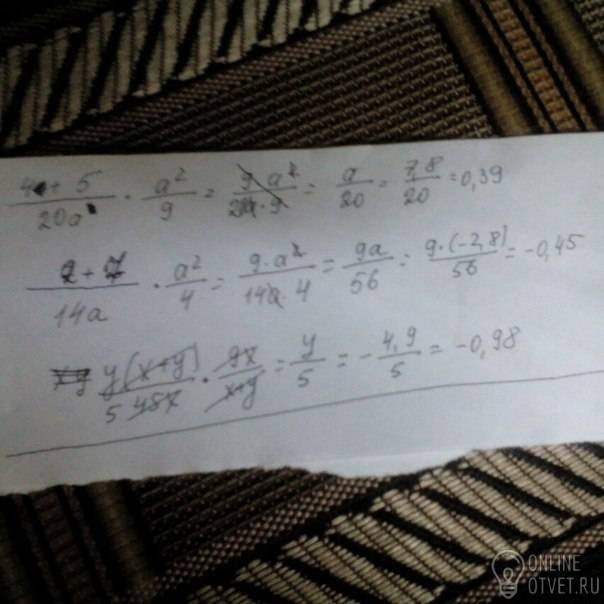 (4 + 5)/(20a) · a²/9 = (9 · a²)/(20a · 9) = a/20 = 7,8/20 = 0,39
(2 + 7)/(14a) · a²/4 = (9 · a²)/(14a · 4) = 9a/56 = 9·(-2,8)/56 = -0,45
xy y(x+y)/(5 45x) · 9x/(x+y) = y/5 = -4,9/5 = -0,98
ONLINE
OTVET.RU